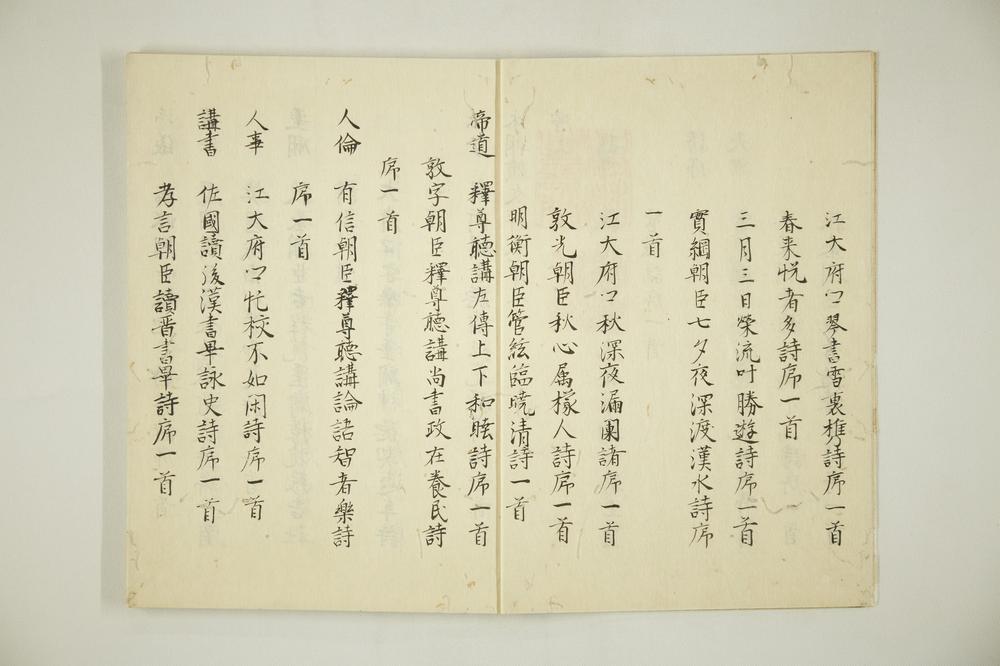 江大府卿琴書雪裏携詩序一首
春来悦者多詩序一首
三月三日縈流叶勝遊詩序一首
實綱朝臣七夕夜深渡漢水詩序
一首
江大府卿秋深夜漏闌詩序一首
敦光朝臣秋心属椽人詩序一首
明衡朝臣管絃臨暁清詩一首
帝道 釋尊聴講左傳上下和睦詩序一首
敦宗朝臣釋尊聴講尚書政在養民詩
序一首
人倫 有信朝臣釋尊聴講論語智者樂詩
序一首
人事 江大府卿忙校不如閑詩序一首
講書 佐國讀後漢書畢詠史詩序一首
孝言朝臣讀晋書畢詩序一首